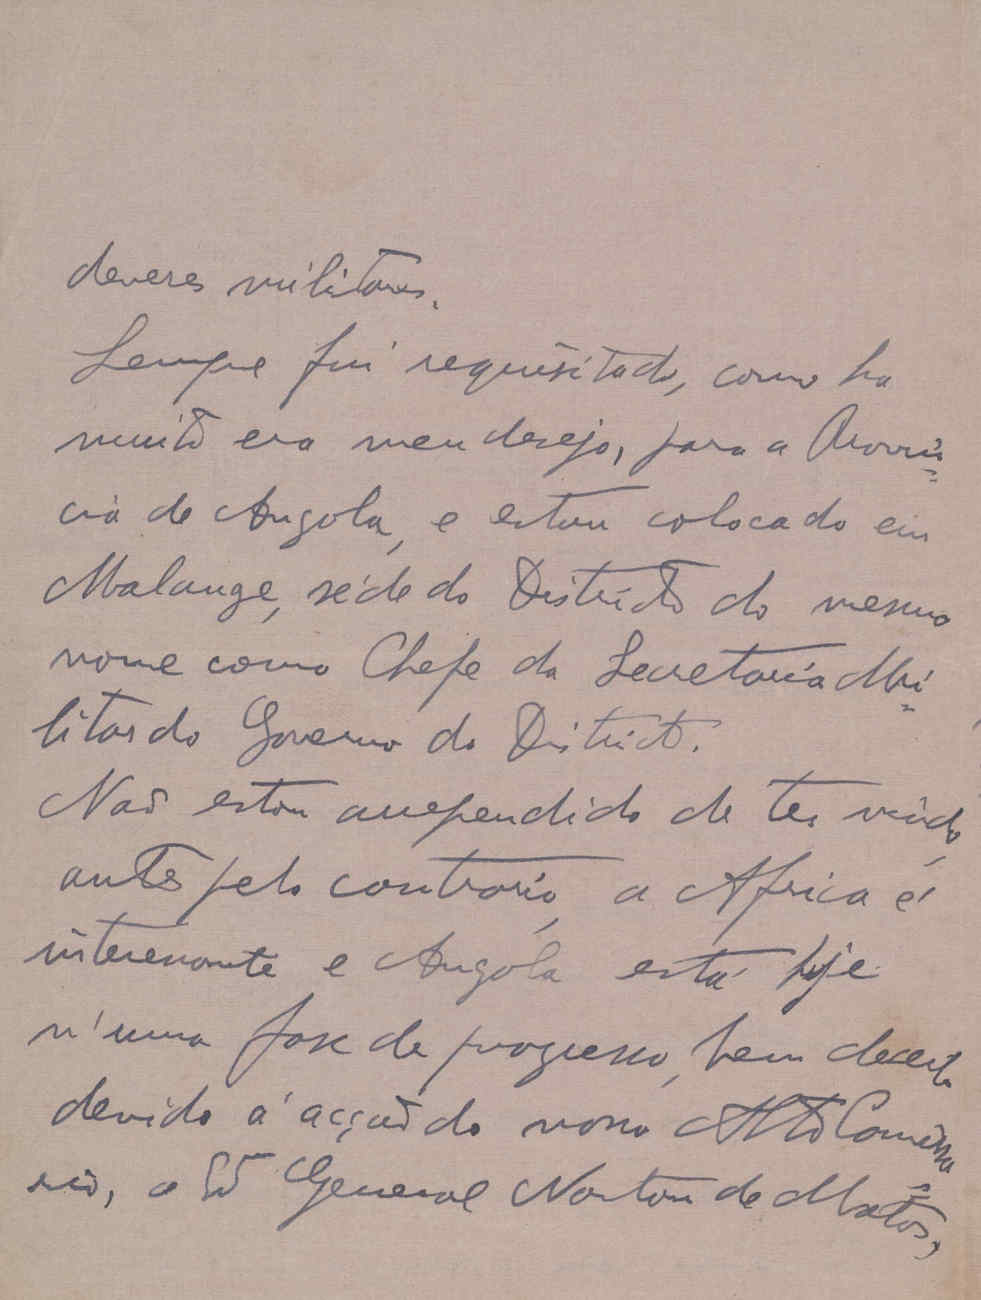 deveres militares.
Sempre fui requisitado, como ha
muito era meu desejo, para a Provin-
cia de Angola, e estou colocado em
Malange, séde do Districto do mesmo
nome como Chefe da Secretaria Mi-
litar do Governo do Districto.
Não estou arrependido de ter vindo,
antes pelo contrario, a Africa é
interessante e Angola está hoje
n'uma fase de progresso, bem decerto
devido á acção do nosso Alto Comissa-
rio, o General Norton de Matos,